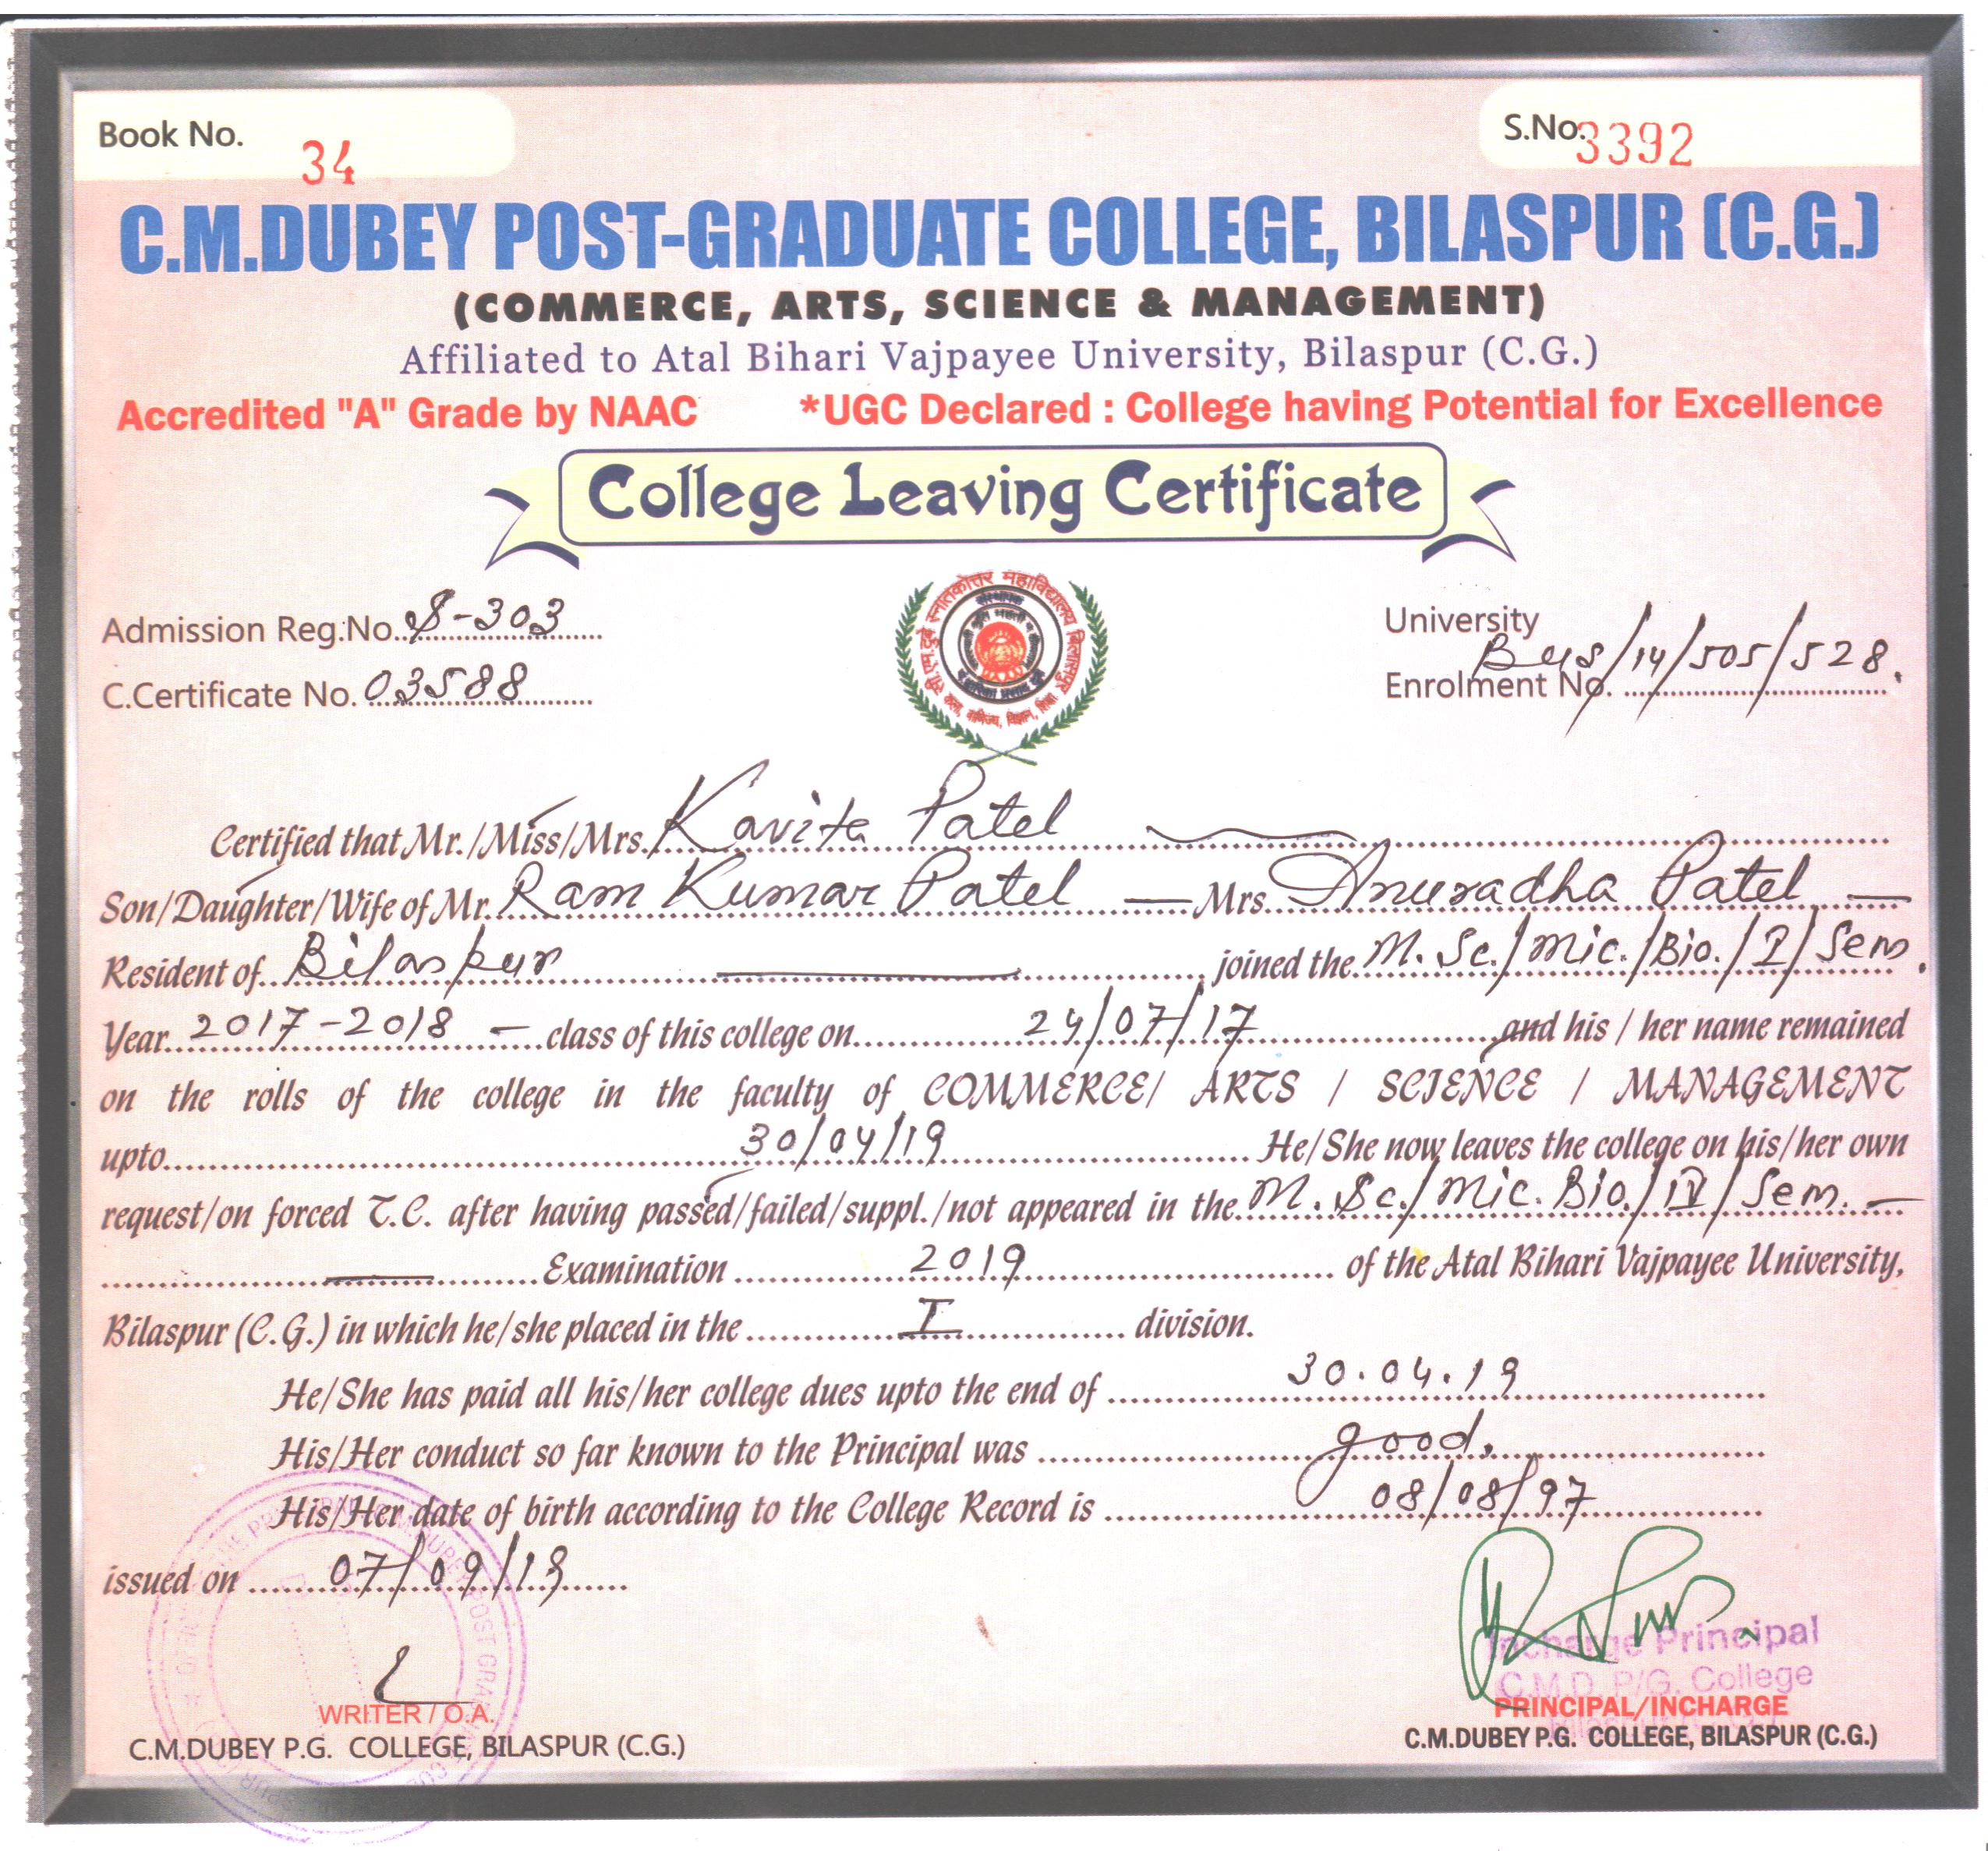 Book No. 34
S.No. 3392
C.M.DUBEY POST-GRADUATE COLLEGE, BILASPUR (C.G.)
(COMMERCE, ARTS, SCIENCE & MANAGEMENT)
Affiliated to Atal Bihari Vajpayee University, Bilaspur (C.G.)
Accredited "A" Grade by NAAC *UGC Declared : College having Potential for Excellence
College Leaving Certificate
Admission Reg.No. S-303
C.Certificate No. 03588
सी.एम.दुबे स्नातकोत्तर महाविद्यालय बिलासपुर
कला, वाणिज्य, विज्ञान, शिक्षा
University
Enrolment No. /14/505/528.
Certified that Mr./Miss/Mrs. Kavita Patel
Son/Daughter/Wife of Mr. Ram Kumar Patel — Mrs. Anuradha Patel —
Resident of Bilaspur joined the M. Sc./Mic./Bio./I/Sem.
Year 2017-2018 — class of this college on 24/07/17 and his / her name remained
on the rolls of the college in the faculty of COMMERCE/ ARTS / SCIENCE / MANAGEMENT
upto 30/04/19 He/She now leaves the college on his/her own
request/on forced T.C. after having passed/failed/suppl./not appeared in the M. Sc./Mic. Bio./IV/Sem. —
— Examination 2019 of the Atal Bihari Vajpayee University,
Bilaspur (C.G.) in which he/she placed in the I division.
He/She has paid all his/her college dues upto the end of 30.04.19
His/Her conduct so far known to the Principal was good.
His/Her date of birth according to the College Record is 08/08/97
issued on 07/09/19
Incharge Principal
C.M.D. P/G. College
WRITER / O.A.
C.M.DUBEY P.G. COLLEGE, BILASPUR (C.G.)
PRINCIPAL/INCHARGE
C.M.DUBEY P.G. COLLEGE, BILASPUR (C.G.)